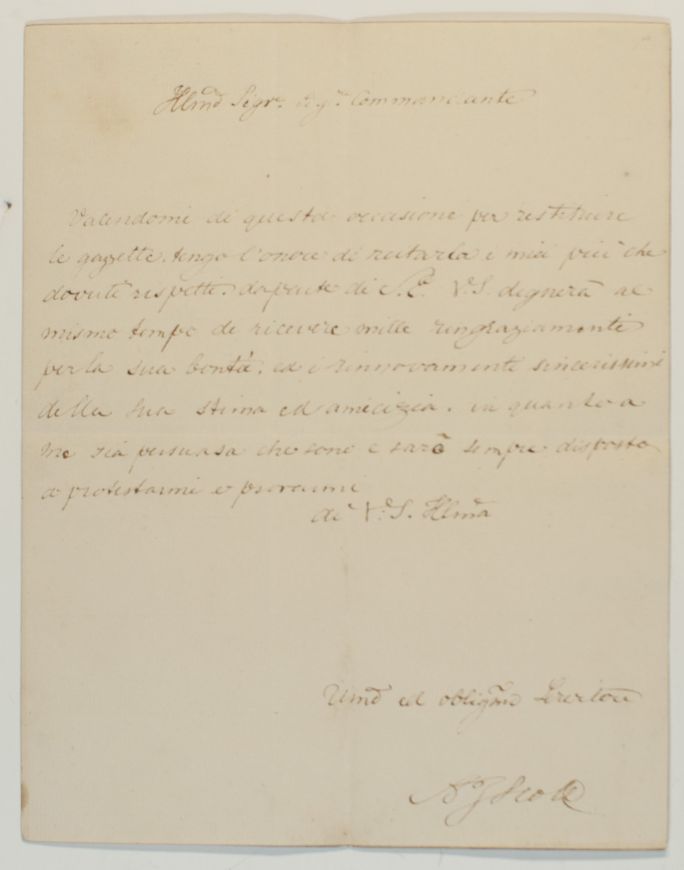 Illmo Sigr. Sigr. Commandante
Valendomi di questa occasione per restituire
le gazzette, tengo l'onore di recitarla i miei piu che
dovuti rispetti. da parte di V.S. degnerà al
mismo tempo di ricevere mille ringraziamenti
per la sua bontà, ed i rinnovamenti sincerissimi
della sua stima ed amicizia. in quanto a
me sia persuasa che sono e sarò sempre disposto
a protestarmi e
di V.S. Illma
Umo ed obligmo Servitore